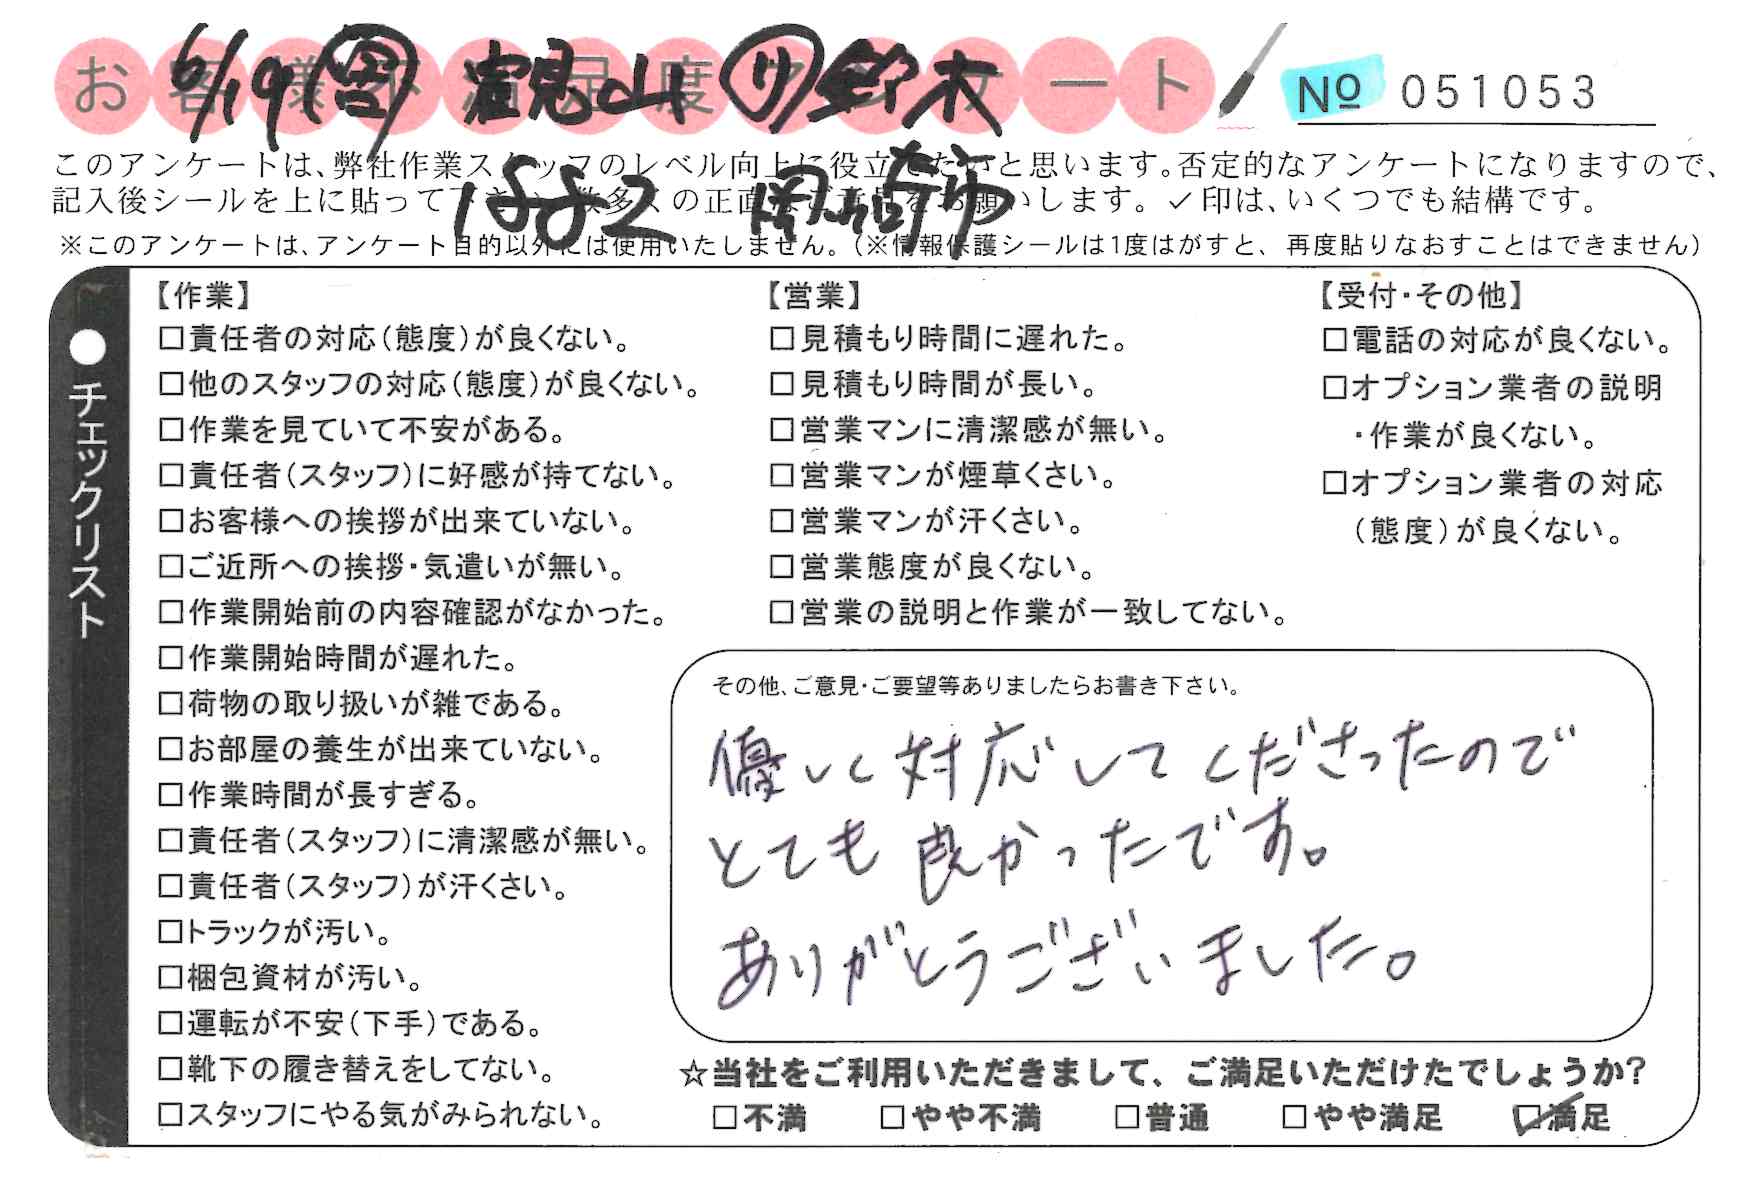 お客様不満足度アンケート
№ 051053
6/19 営 富見山 リ 鈴木
1882 岡崎市
このアンケートは、弊社作業スタッフのレベル向上に役立てたいと思います。否定的なアンケートになりますので、
記入後シールを上に貼って下さい。数多くの正直なご意見をお願いします。✓印は、いくつでも結構です。
※このアンケートは、アンケート目的以外には使用いたしません。（※情報保護シールは1度はがすと、再度貼りなおすことはできません）
●チェックリスト
【作業】
□責任者の対応（態度）が良くない。
□他のスタッフの対応（態度）が良くない。
□作業を見ていて不安がある。
□責任者（スタッフ）に好感が持てない。
□お客様への挨拶が出来ていない。
□ご近所への挨拶・気遣いが無い。
□作業開始前の内容確認がなかった。
□作業開始時間が遅れた。
□荷物の取り扱いが雑である。
□お部屋の養生が出来ていない。
□作業時間が長すぎる。
□責任者（スタッフ）に清潔感が無い。
□責任者（スタッフ）が汗くさい。
□トラックが汚い。
□梱包資材が汚い。
□運転が不安（下手）である。
□靴下の履き替えをしてない。
□スタッフにやる気がみられない。
【営業】
□見積もり時間に遅れた。
□見積もり時間が長い。
□営業マンに清潔感が無い。
□営業マンが煙草くさい。
□営業マンが汗くさい。
□営業態度が良くない。
□営業の説明と作業が一致してない。
【受付・その他】
□電話の対応が良くない。
□オプション業者の説明
・作業が良くない。
□オプション業者の対応
（態度）が良くない。
その他、ご意見・ご要望等ありましたらお書き下さい。
優しく対応してくださったので
とても良かったです。
ありがとうございました。
☆当社をご利用いただきまして、ご満足いただけたでしょうか?
□不満 □やや不満 □普通 □やや満足 ☑満足